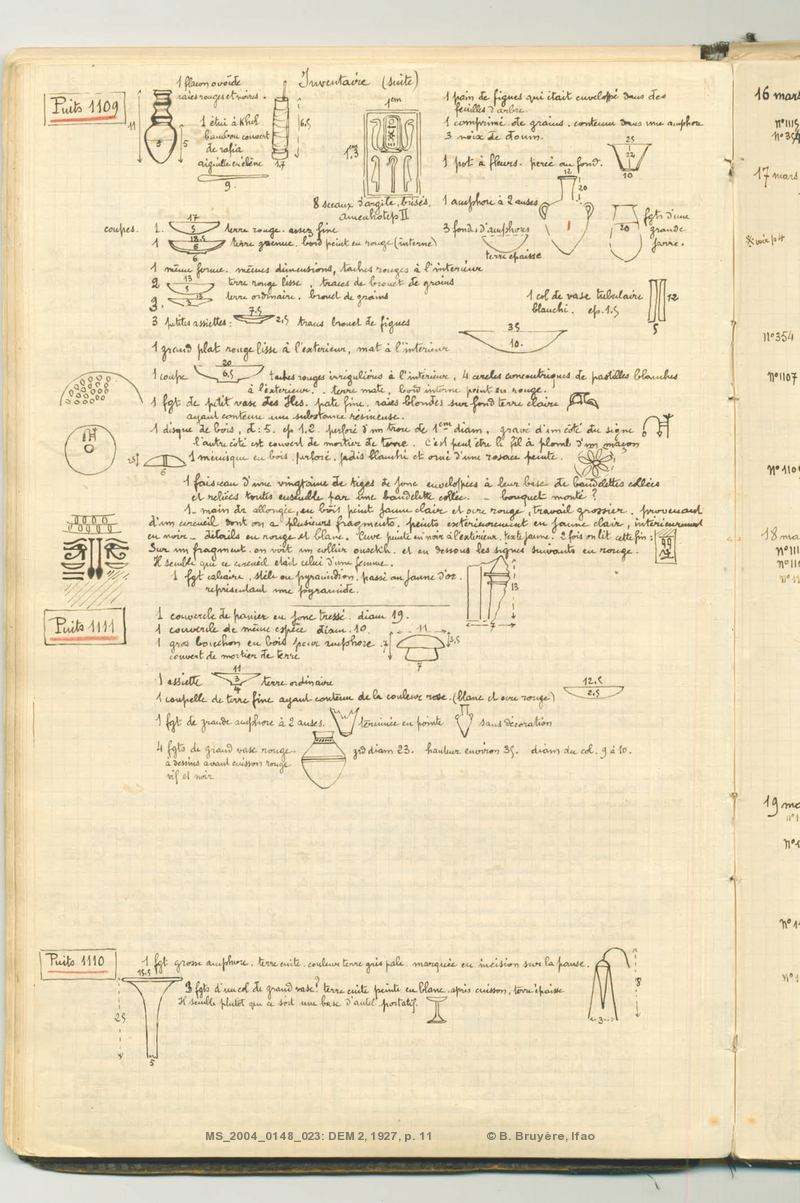 Inventaire (suite)
Puits 1109
1 flacon ovoïde
raies rouges et noires.
11
3
5
1 étui à Khol
bambou couvert
de rafia
aiguille en ébène
6.5
1.7
9.
1cm
1.3
8 sceaux d'argile, brisés.
amenhotep II
1 pain de figues qui était enveloppé dans des
feuilles d'arbre
1 comprimé de grains. contenu dans une amphore
3 noix de doum.
1 pot à fleurs. percé au fond.
25
22
10
1 amphore à 2 anses
12
20
3 fonds d'amphores
terre épaisse
20
fgts d'une
grande
jarre.
coupes.
1. 17 5 terre rouge. assez fine
1 18.5 6 6 terre grenue. bord peint en rouge (interne)
1 même forme. mêmes dimensions, taches rouges à l'intérieur
2 13 5 terre rouge lisse, traces de brouet de grains
3. 13 3 terre ordinaire, brouet de grains
3 petites assiettes: 7.5 2.5 traces brouet de figues
1 col de vase tubulaire
blanchi. ep. 1.5
12
5
1 grand plat rouge lisse à l'extérieur, mat à l'intérieur
35
10.
1 coupe 20 6.5 taches rouges irrégulières à l'intérieur, 4 cercles concentriques de pastilles blanches
à l'extérieur. terre mate, bord interne peint en rouge.
1 fgt de petit vase des Iles. pate fine. raies blondes sur fond terre claire
ayant contenu une substance résineuse.
1 disque de bois, d: 5. ep 1.2. perforé d'un trou de 1cm diam, gravé d'un côté du signe
l'autre côté est couvert de mortier de terre. C'est peut être le fil à plomb d'un maçon
6
1 ménisque en bois perforé, jadis blanchi et orné d'une rosace peinte.
1 faisceau d'une vingtaine de tiges de jonc enveloppées à leur base de bandelettes collées
et reliées toutes ensemble par une bandelette collée. - bouquet monté?
1 main de allongée, en bois peint jaune clair et ocre rouge, travail grossier. provenant
d'un cercueil dont on a plusieurs fragments. peints extérieurement en jaune clair, intérieurement
en noir - détails en rouge et blanc. Cuve peinte en noir à l'extérieur. texte jaune. 2 fois on lit cette fin:
Sur un fragment. on voit un collier ousekh. et en dessous les signes suivants en rouge.
Il semble que ce cercueil était celui d'une femme.
1 fgt calcaire, stèle ou pyramidion. passé au jaune d'or.
représentant une pyramide.
13
7
Puits 1111
1 couvercle de panier en jonc tressé. diam 19.
1 couvercle de même espèce diam. 10.
1 gros bouchon en bois pour amphore.
couvert de mortier de terre
11
7
3.5
7
1 assiette 11 3 4 terre ordinaire
1 coupelle de terre fine ayant contenu de la couleur rose. (blanc et ocre rouge)
12.5
2.5
1 fgt de grande amphore à 2 anses. terminée en pointe sans décoration
4 fgts de grand vase rouge.
à dessins avant cuisson rouge
vif et noir
gd diam 23. hauteur environ 35. diam du col. 9 à 10.
Puits 1110
1 fgt grosse amphore. terre cuite. couleur terre gris pale. marquée en incision sur la panse.
15.5
25
5
3 fgts d'un col de grand vase? terre cuite peinte en blanc. après cuisson, terre épaisse
Il semble plutôt que ce soit une base d'autel portatif.
8
3
16 mars
n°1115
n°354
17 mars
voir p4
n°354
n°1107
n°110
18 ma
n°111
n°11
19 ma
MS_2004_0148_023: DEM 2, 1927, p. 11 © B. Bruyère, Ifao